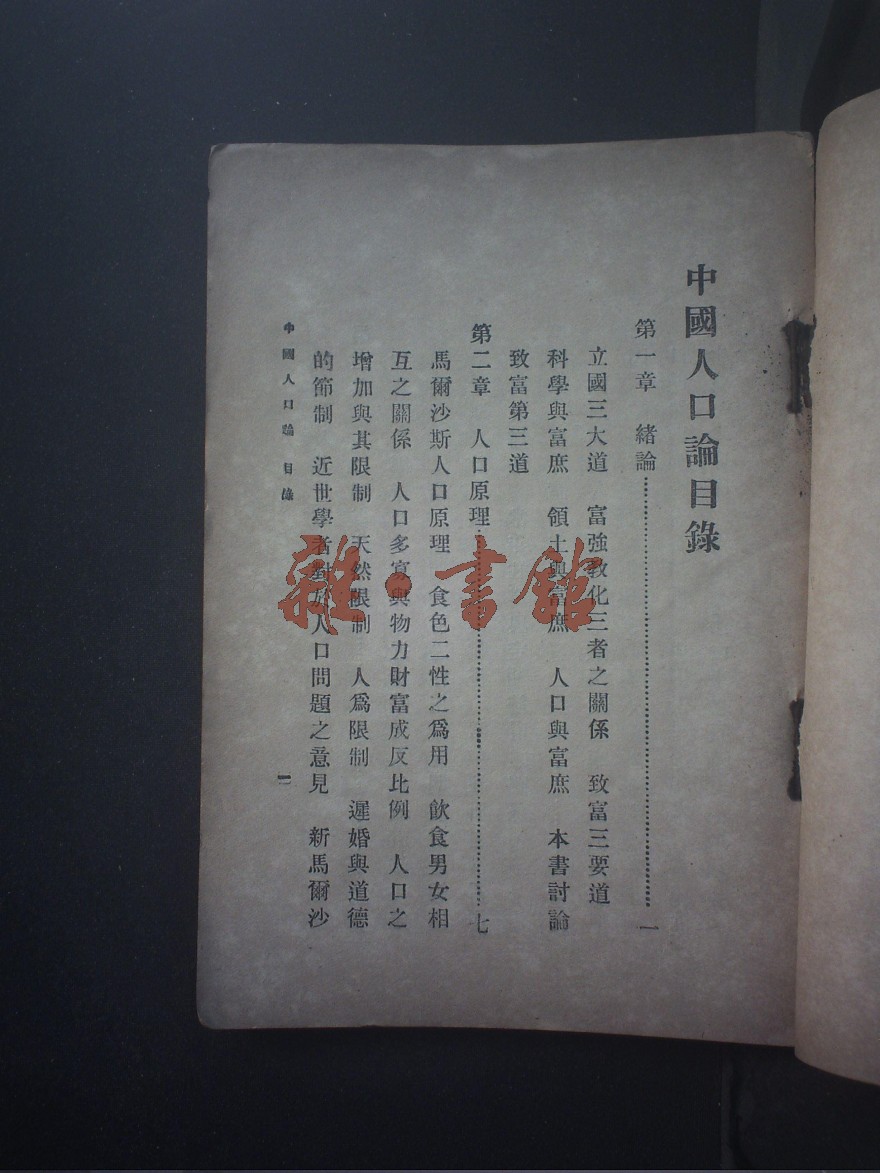 中國人口論目錄
第一章　緒論……一
立國三大道　富強教化三者之關係　致富三要道
科學與富庶　領土與富庶　人口與富庶　本書討論
致富第三道
第二章　人口原理……七
馬爾沙斯人口原理　食色二性之爲用　飲食男女相
互之關係　人口多寡與物力財富成反比例　人口之
增加與其限制　天然限制　人爲限制　遲婚與道德
的節制　近世學者對於人口問題之意見　新馬爾沙
中國人口論　目錄　一
雜·書館